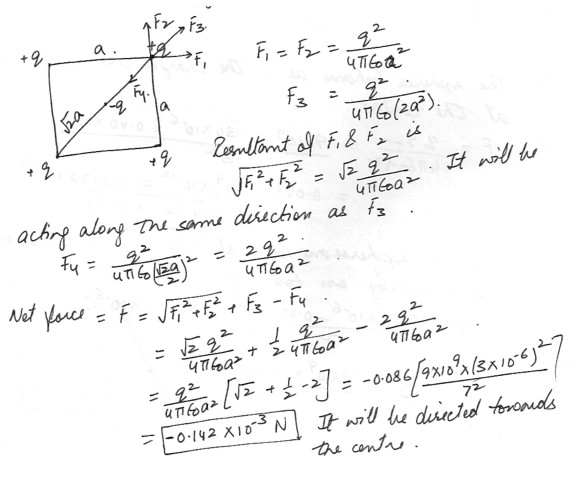 F₂ F₃
+q a. +q F₁
F₄
-q a
√2a
+q +q
F₁ = F₂ = q²/4π∈₀a²
F₃ = q²/4π∈₀(2a²).
Resultant of F₁ & F₂ is
√F₁²+F₂² = √2 q²/4π∈₀a². It will be
acting along the same direction as F₃.
F₄ = q²/4π∈₀(√2a/2)² = 2q²/4π∈₀a².
Net force = F = √F₁²+F₂² + F₃ - F₄.
= √2 q²/4π∈₀a² + 1/2 q²/4π∈₀a² - 2q²/4π∈₀a².
= q²/4π∈₀a² [√2 + 1/2 - 2] = -0.086 [9×10⁹×(3×10⁻⁶)²/7²]
= -0.142 ×10⁻³ N It will be directed towards
the centre.